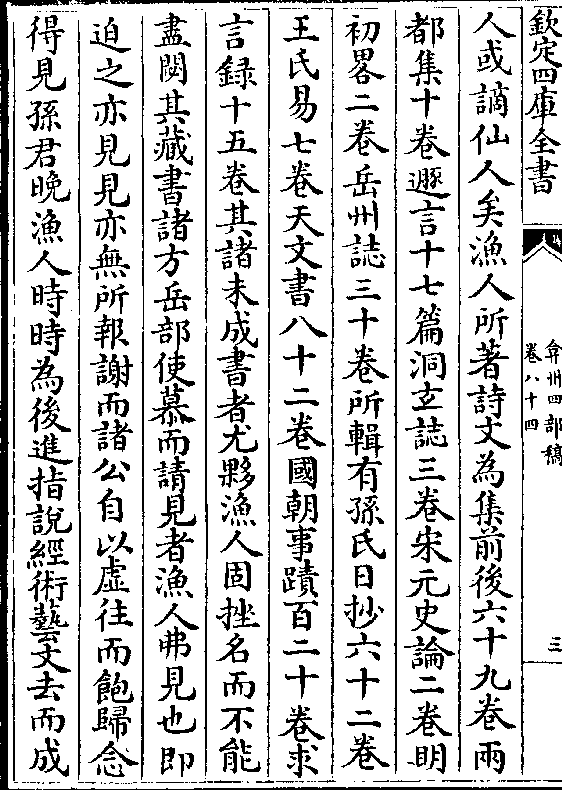 欽定四庫全書
弇州四部稿
卷八十四
三
人或謫仙人矣漁人所著詩文為集前後六十九卷兩
都集十卷遯言十七篇洞玄誌三卷宋元史論二卷明
初畧二卷岳州誌三十卷所輯有孫氏日抄六十二卷
王氏易七卷天文書八十二卷國朝事蹟百二十卷求
言録十五卷其諸未成書者尤夥漁人固挫名而不能
盡閟其藏書諸方岳部使慕而請見者漁人弗見也即
迫之亦見見亦無所報謝而諸公自以虛往而飽歸念
得見孫君晩漁人時時為後進指說經術藝文去而成